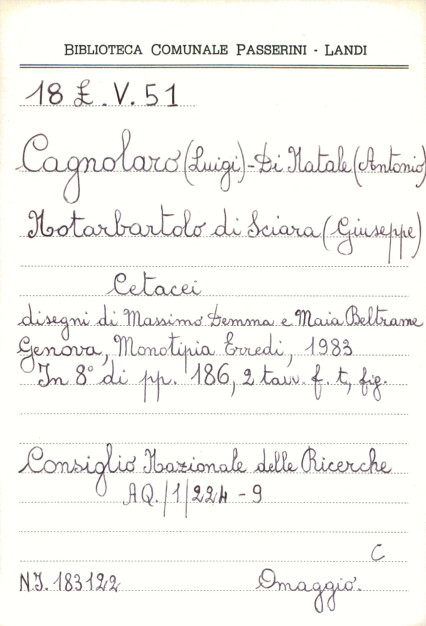 BIBLIOTECA COMUNALE PASSERINI - LANDI
18 £. V. 51
Cagnolaro (Luigi) - Di Natale (Antonio)
Notarbartolo di Sciara (Giuseppe)
Cetacei
disegni di Massimo Demma e Maia Beltrame
Genova, Monotipia Erredi, 1983
In 8° di pp. 186, 2 tavv. f. t., fig.
Consiglio Nazionale delle Ricerche
AQ/1/224 - 9
C
N.I. 183122 Omaggio.